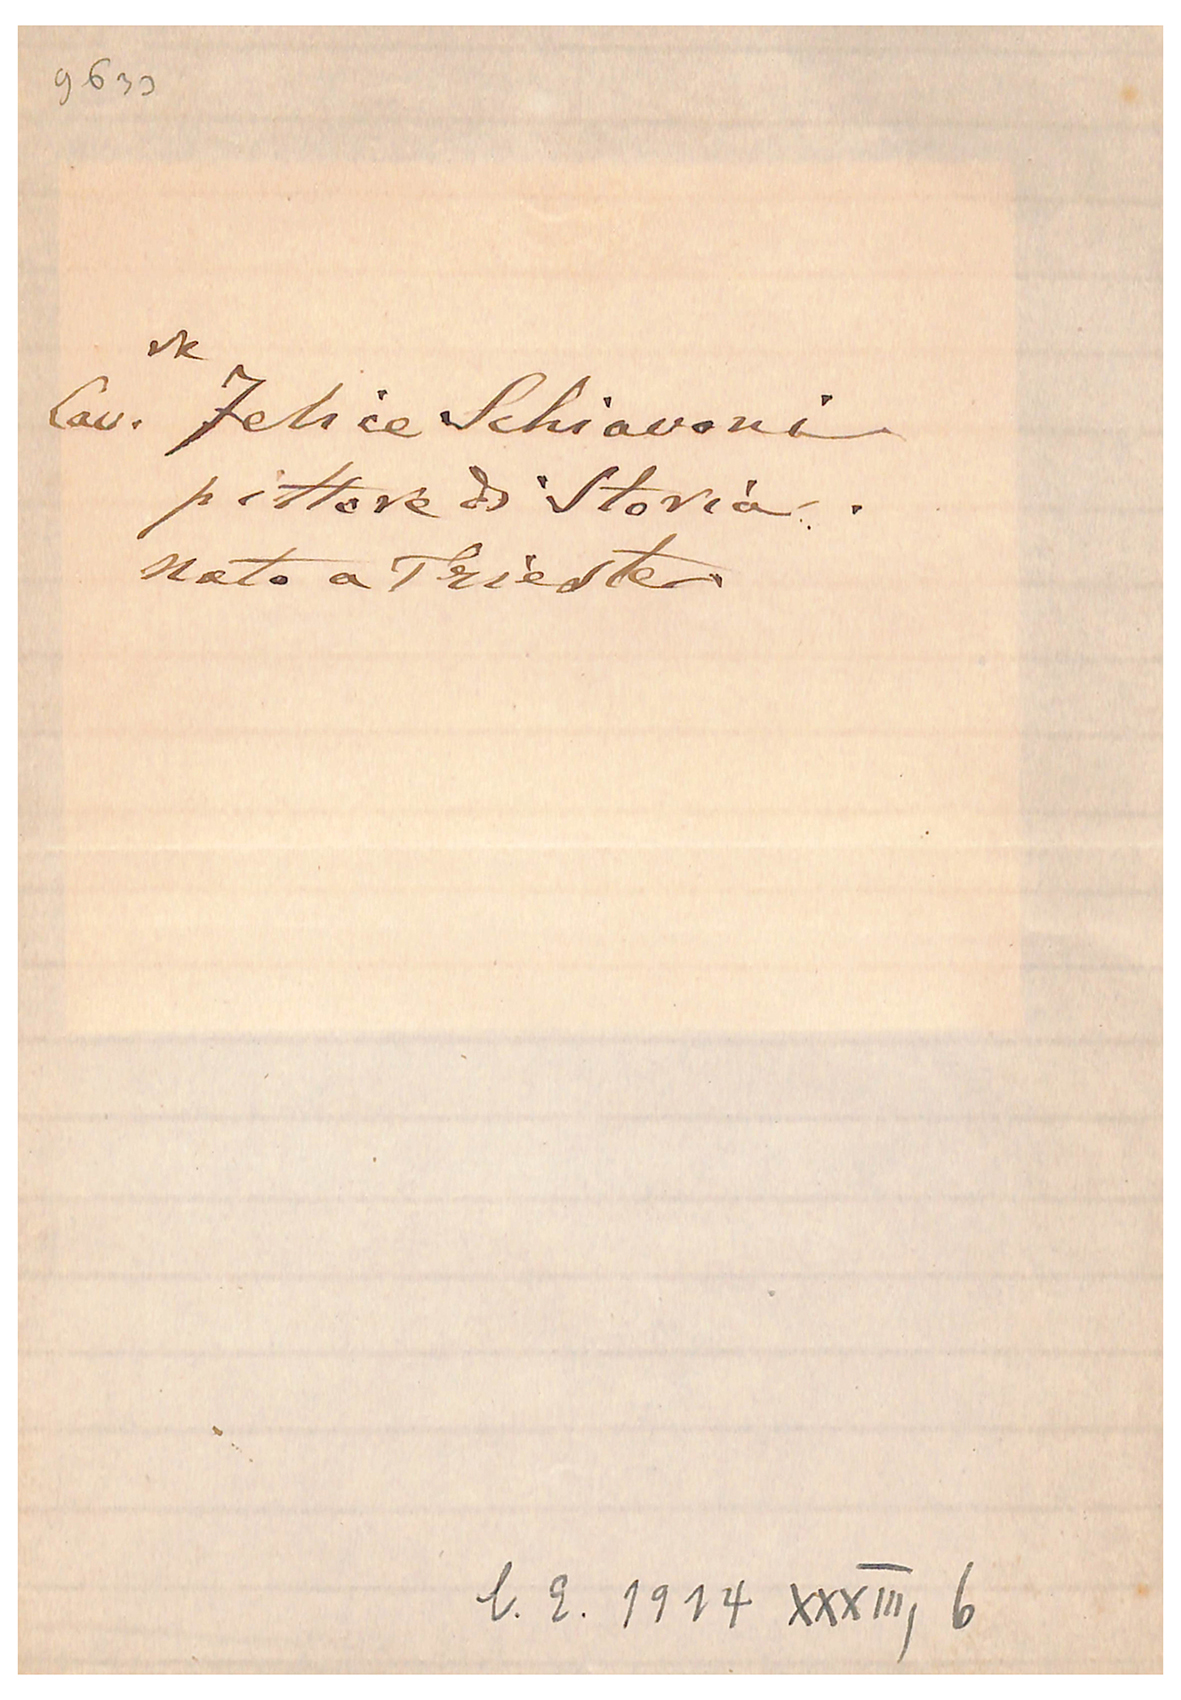 963
Cav. Felice Schiavoni
pittore di Storia.
nato a Trieste
1914 XXXIII, 6